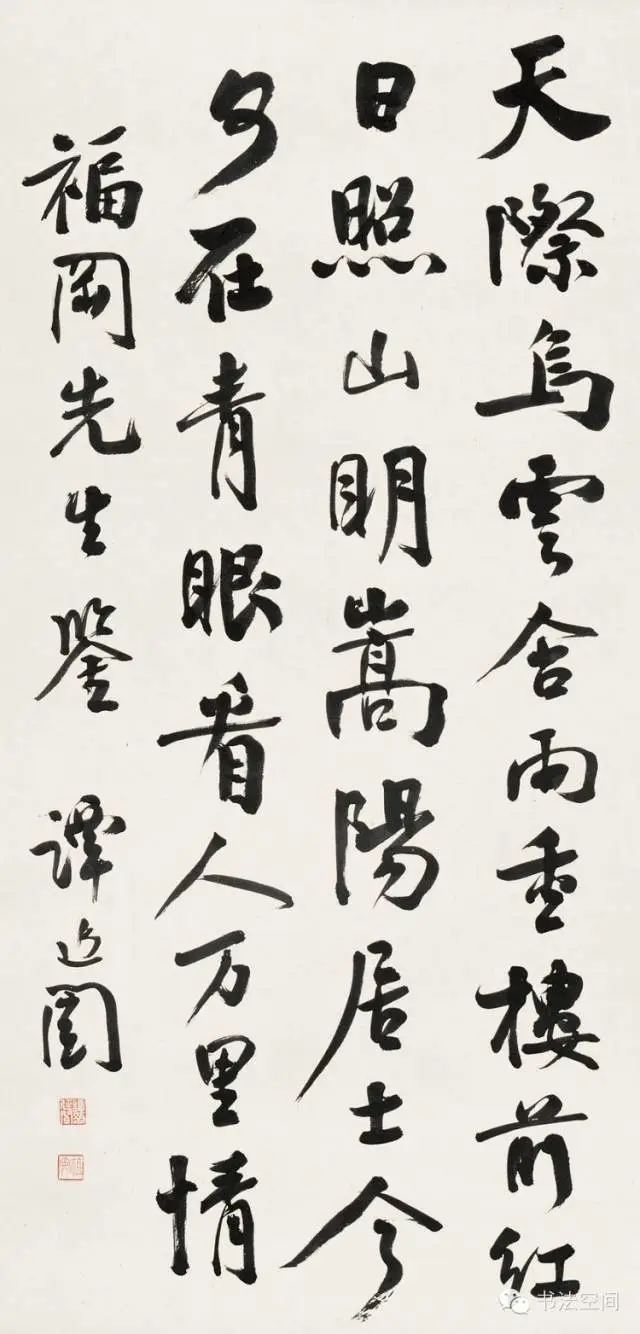 天際烏雲含雨重樓前紅
日照山明嵩陽居士今
何在青眼看人万里情
福岡先生鑒 譚延闓
书法空间